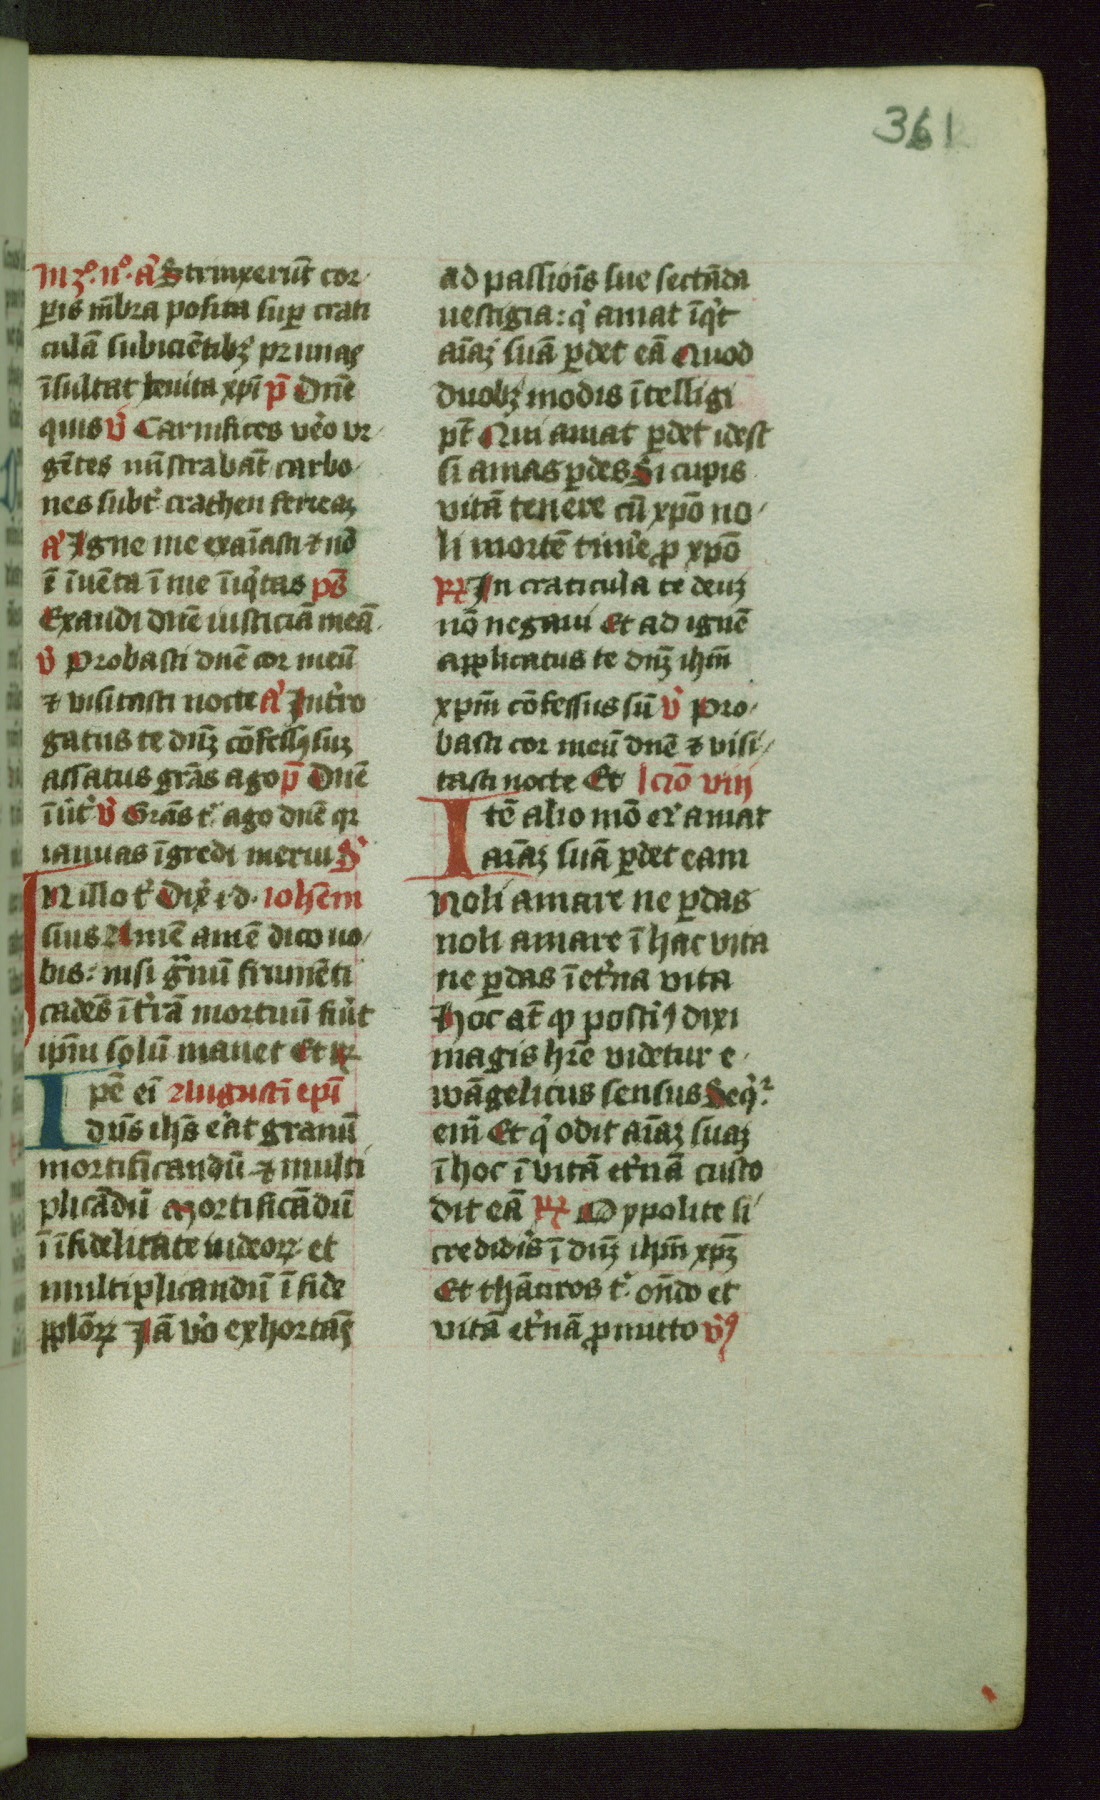 361
In ꝫº. nº. a᷒ Strinxerūt cor-
ꝑis mēbra posita suꝑ crati
culā subiciētibꝫ prunas
īsultat leuita xp̄i p̄ Dn̄e
quis v̄ Carnifices vͤo vr-
gētes mīstrabāt carbo-
nes subtͥ crathen ferreaꝫ
a᷒ Igne me exaīasti ⁊ nō
ē īuēta ī me īiqͥtas ps̄
Exaudi dn̄e iusticiā meā.
v̄ Probasti dn̄e cor meū
⁊ visitasti nocte a᷒ Int͛ro
gatus te dn̄ꝫ cōfessꝰ suꝫ
assatus grās ago p̄ Dn̄e
īūt᷒ v̄ Grās tͥ ago dn̄e qꝛ
ianuas īgredi merui S᷒
N illo t᷒ Dix᷒ i d. Iohēm
sius Amē amē dico uo-
bis: nisi gͣnū frumēti
cadēs ī t͛rā mortuū fu͛it
ipm̄ solū manet Et ꝶ
Ipē ei Augustī ep̄i
dn̄s ih̄s e͛at granū
mortificandū ⁊ multi
plicādū Mortificādū
ī īfidelitate iudeoꝝ et
multiplicandū ī fide
pplōꝝ Iā v͛o exhortās
ad passiōis sue sectāda
uestigia: qͥ amat īqͥt
aīaꝫ suā ꝑdet eā Quod
duobꝫ modis ītelligi
pt̄ Qui amat ꝑdet idest
si amas ꝑdes Si cupis
vitā tenere cū xpō no-
li mortē tim͛e ꝓ xpō
ꝶ In craticula te deuꝫ
nō negaui Et ad ignē
applicatus te dn̄ꝫ ih̄m
xpm̄ cōfessus sū v̄ Pro-
basti cor meū dn̄e ⁊ visi-
tasti nocte Et lcīo viij
Itē alio mō Qͥ amat
aīaꝫ suā ꝑdet eam
Noli amare ne ꝑdas
noli amare ī hac vita
ne ꝑdas ī et͛na vita
Hoc at̄ qͩ postīꝰ dixi
magis hr̄e videtur e-
wāgelicus sensus Seqͥꝉ
em̄ Et qͥ odit aīaꝫ suaꝫ
ī hoc ī vitā et͛nā custo
dit eā ꝶ O ypolite si
credid͛is ī dn̄ꝫ ih̄m xpꝫ
Et thāuros tͥ ōndo et
vitā et͛nā ꝓmitto v᷒ꝰ